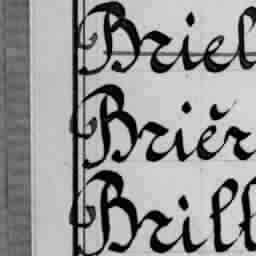 Briel
Briĕr
Brill